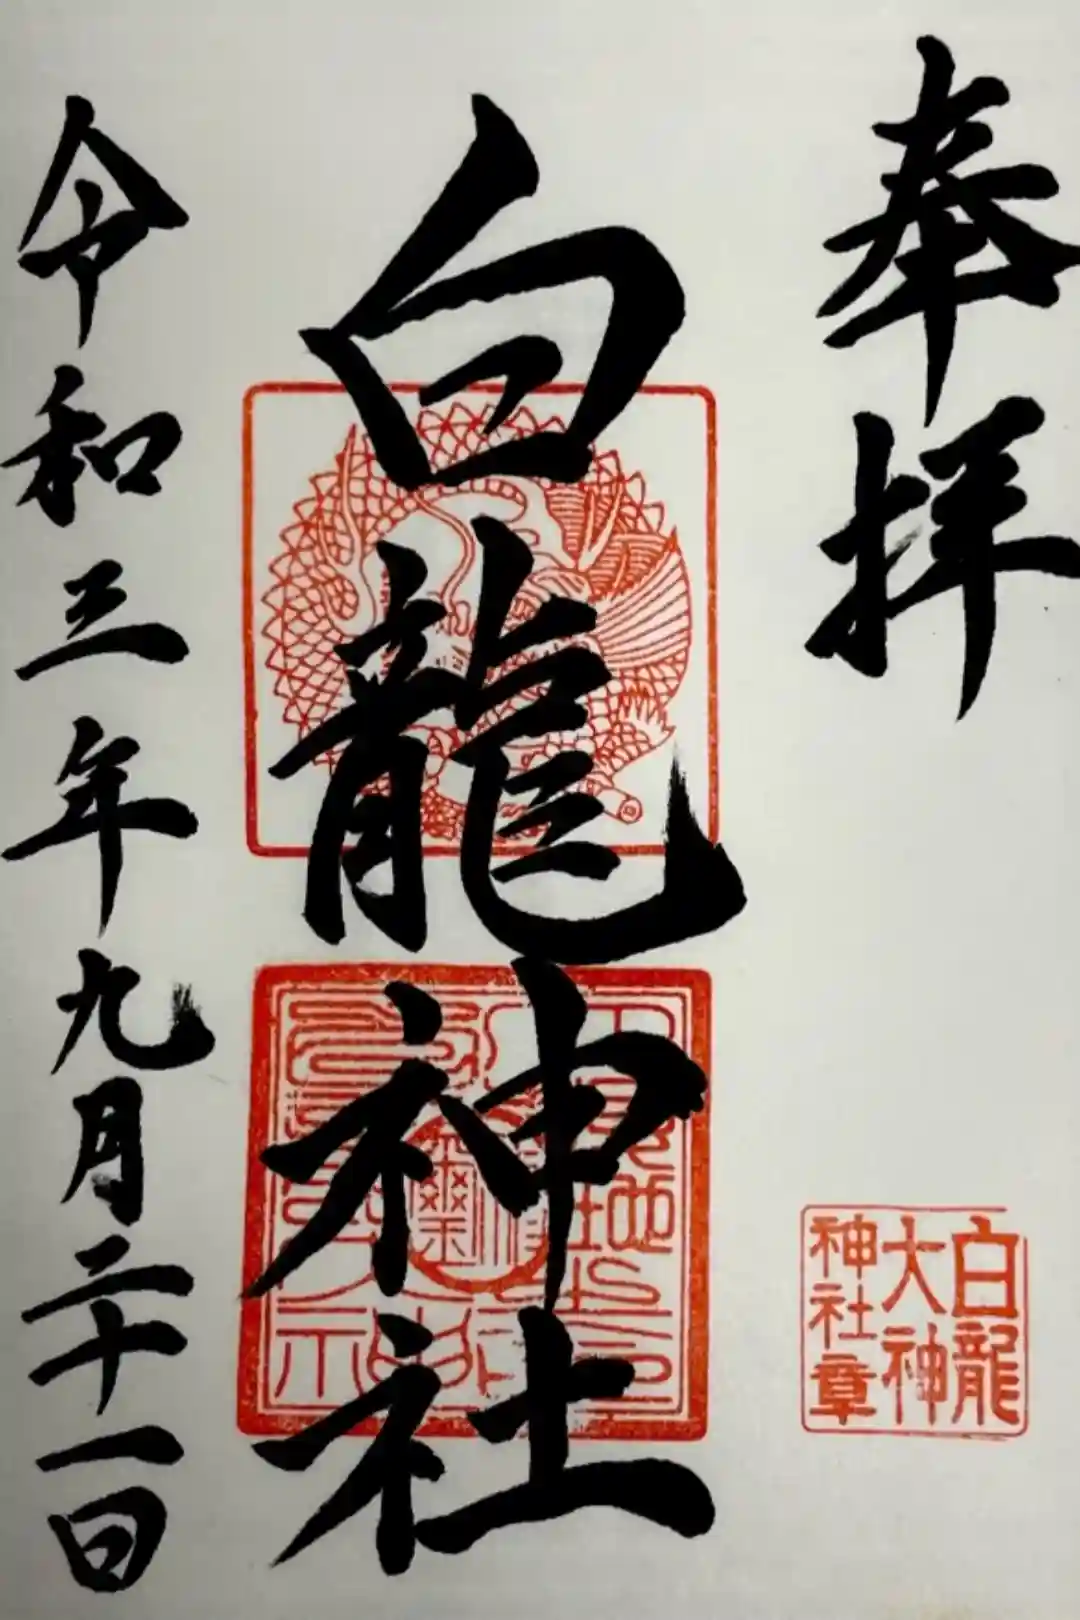 奉拝
白龍
大神
神社章
白龍神社
令和三年九月二十一日